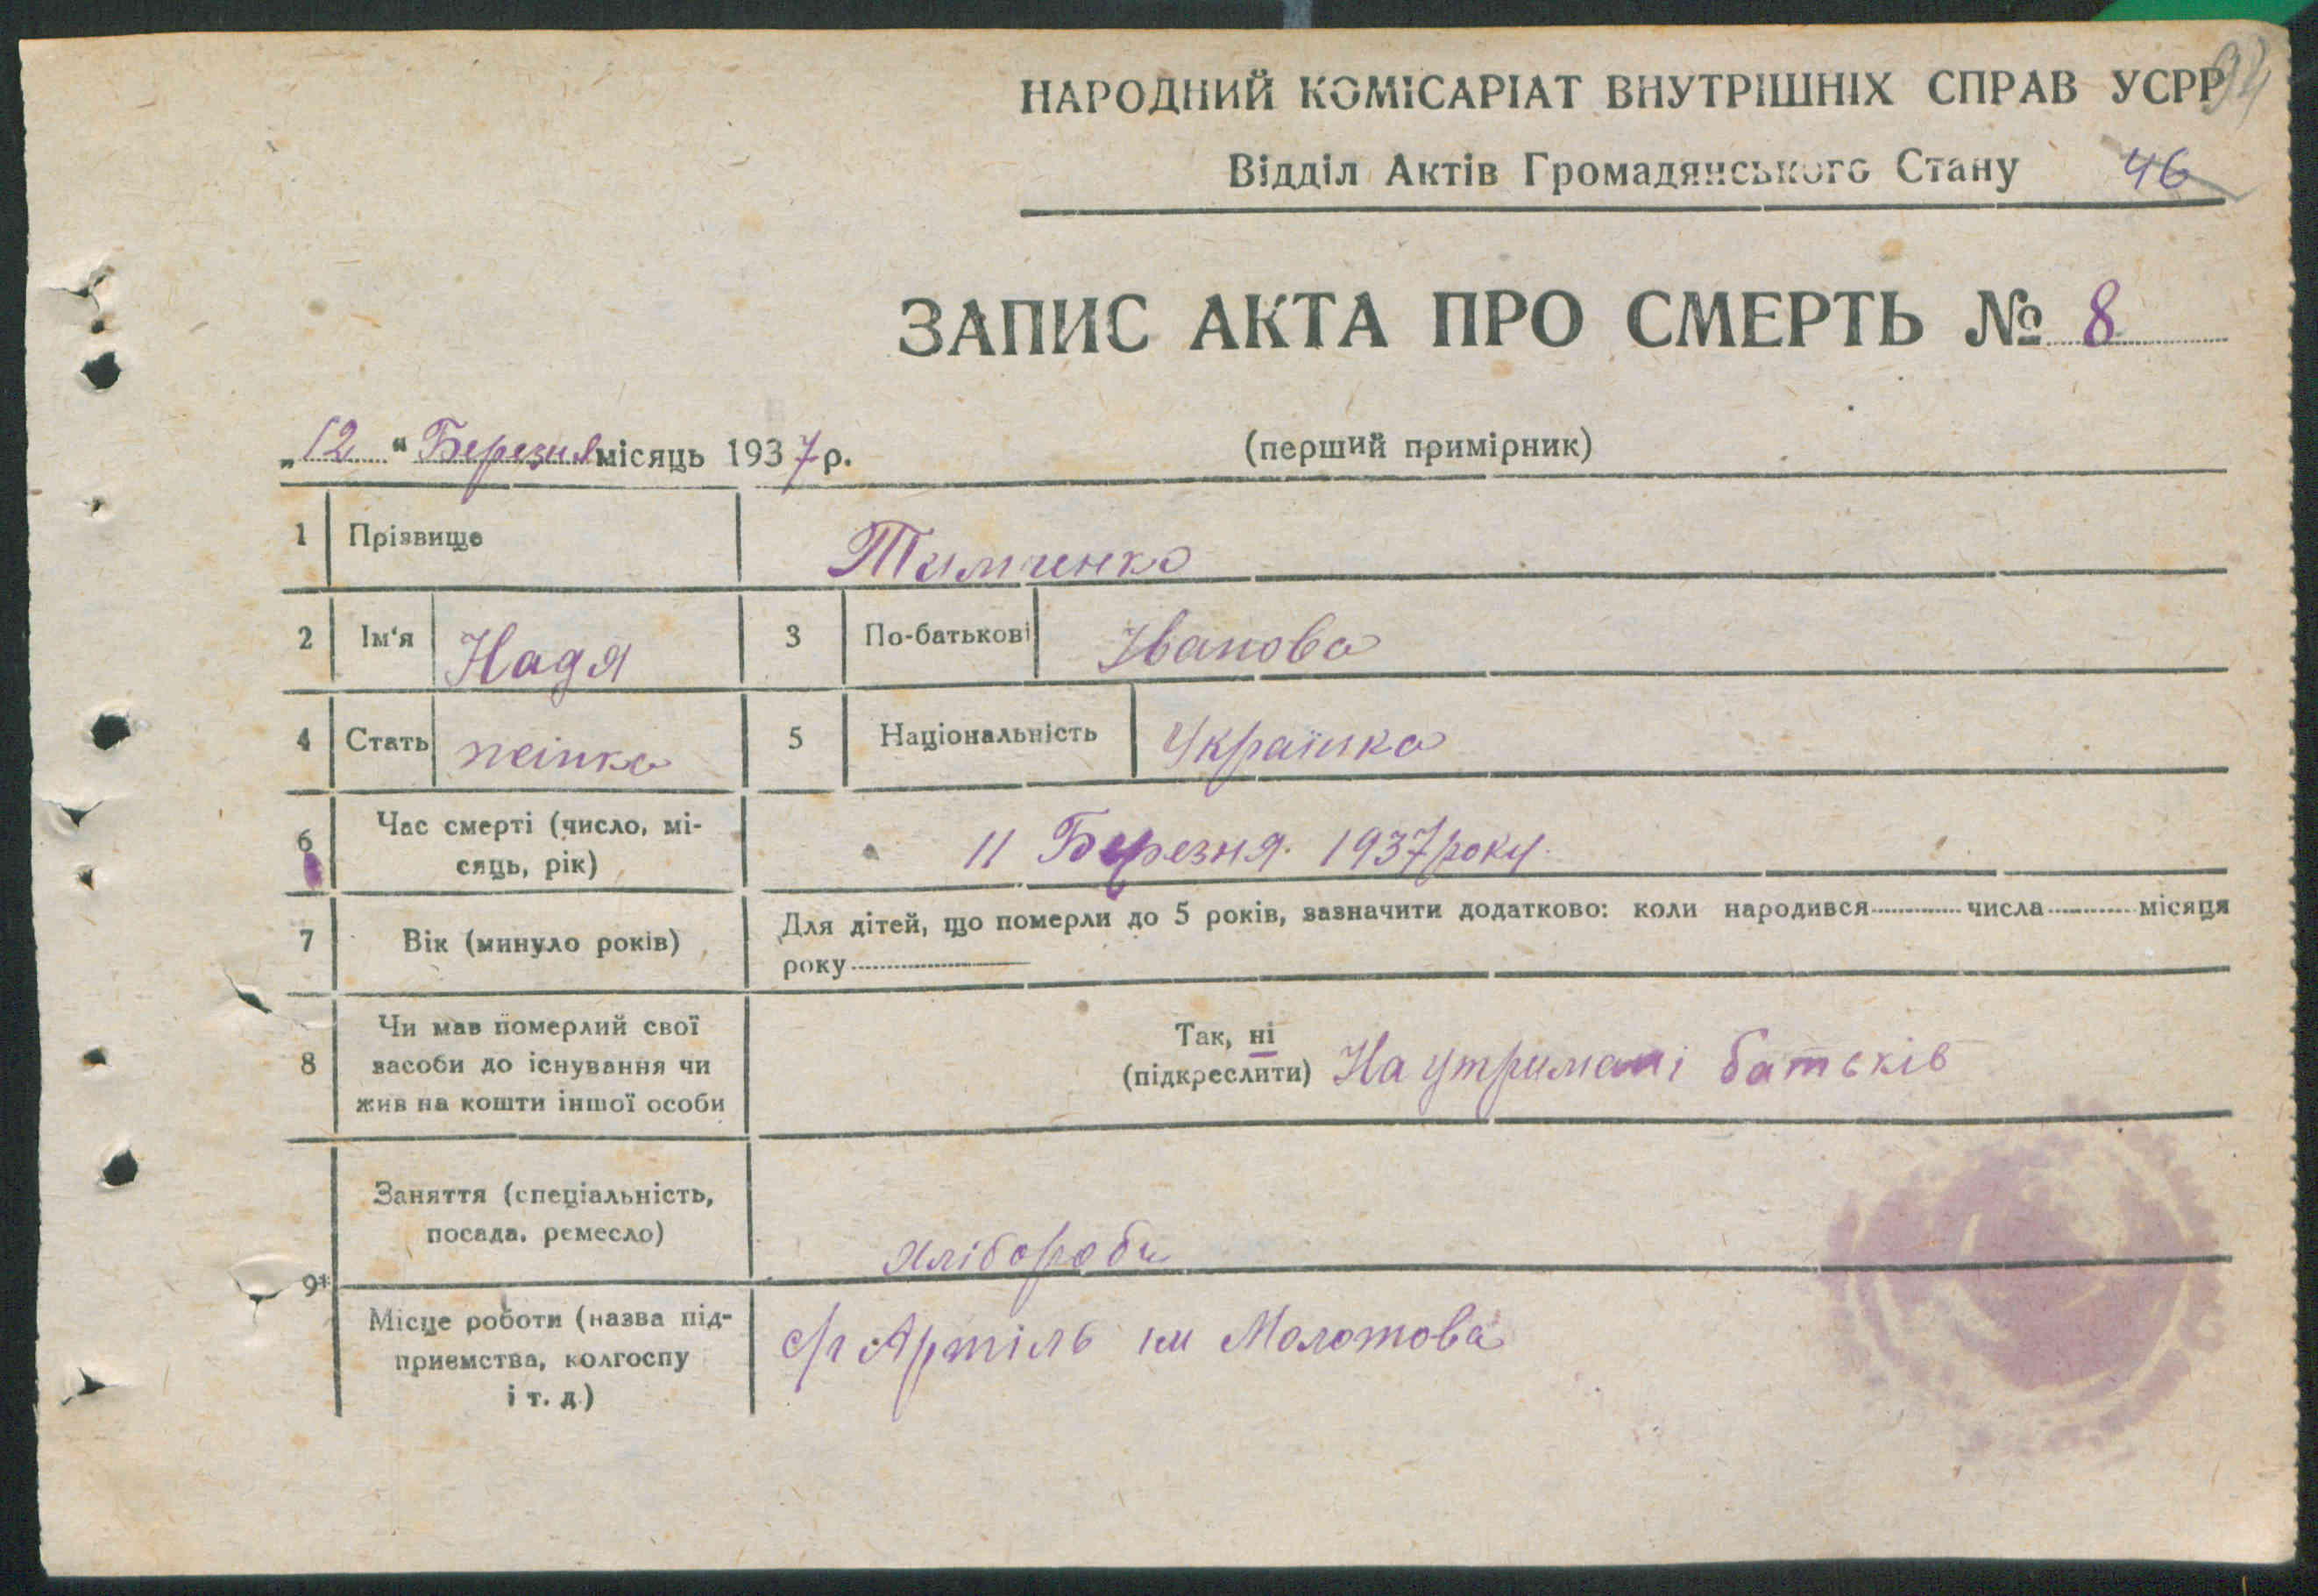 94
НАРОДНИЙ КОМІСАРІАТ ВНУТРІШНІХ СПРАВ УСРР
Відділ Актів Громадянського Стану 46
ЗАПИС АКТА ПРО СМЕРТЬ № 8
„12“ Березня місяць 1937 р.
(перший примірник)
1 Прізвище Тимченко
2 Ім'я Надя 3 По-батькові Іванова
4 Стать жінка 5 Національність Українка
6 Час смерті (число, мі-
сяць, рік) 11 Березня 1937 року
7 Вік (минуло років) Для дітей, що померли до 5 років, зазначити додатково: коли народився числа місяця
року
8 Чи мав померлий свої
засоби до існування чи
жив на кошти іншої особи
Так, ні
(підкреслити) На утримані батьків
9 Заняття (спеціальність,
посада, ремесло) Хлібороби
Місце роботи (назва під-
приємства, колгоспу
і т. д.)
с/г Артіль ім Молотова